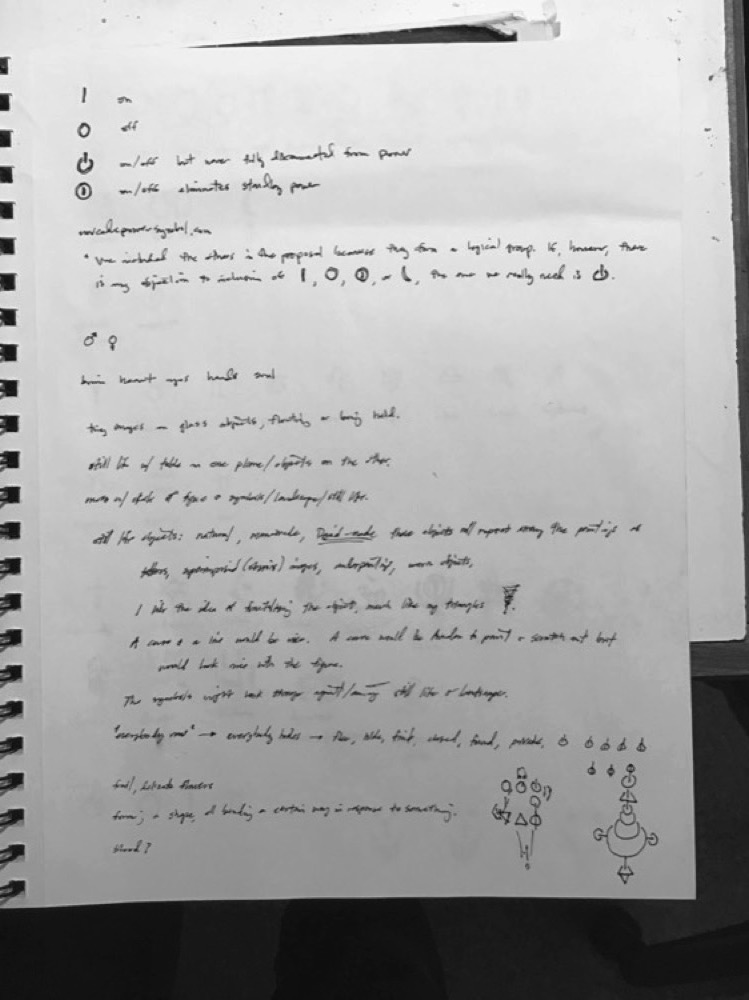 | on
O off
⏻ on/off but never fully disconnected from power
⏼ on/off eliminates standby power
unicodepowersymbol.com
"We included the others in the proposal because they form a logical group. If, however, there
is any objection to inclusion of |, O, ⏼, or ☾, the one we really need is ⏻.
♂ ♀
brain heart eyes hands
tiny images in glass objects, floating or being held.
still life w/ table in one plane/objects on the other.
w/ of type & symbols/landscape/still life.
still life objects: natural, manmade, David-made these objects will repeat among the paintings as
superimposed images, underpainting, objects.
I like the idea of the object, much like my triangles
A curve & a line would be nice. A curve would be harder to paint or scratch out but
would look nice with the figure.
The symbols might look strange against/among still lifes or landscapes.
"everybody → everybody hides → found,
frail, delicate flowers
forming a shape, of bending a certain way in response to something.
blood?